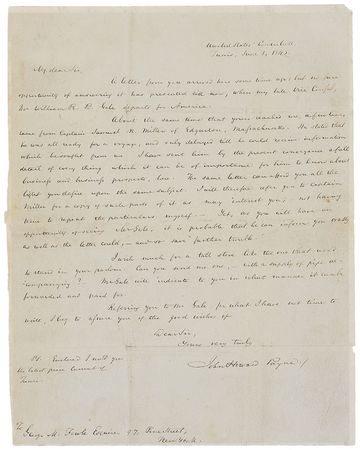 United States' Consulate,
Tunis, June 1, 184
My dear Sir,
A letter from you arrived here some time ago; but no sure
opportunity of answering it was presented till now, when my late Vice Consul,
Dr William R. B. Gale departs for America.
About the same time that yours reached me, inquiries
came from Captain Samuel R. Miller of Edgarton, Massachusetts. He stated that
he was all ready for a voyage, and only delayed till he could receive information
which he sought from me. I have sent him by the present conveyance a full
detail of every thing which it can be of importance for him to know about
business and business prospects, here. The same letter can afford you all the
light you desire upon the same subject. I will therefore refer you to Captain
Miller for a copy of such parts of it as may interest you; not having
time to repeat the particulars myself. Yet, as you will have an
opportunity of seeing Mr Gale, it is probable that he can inform you orally
as well as the letter could, and so save further trouble
I wish much for a tall stove like the one that used
to stand in your parlour. Can you send me one, with a supply of pipe
accompanying? Mr Gale will indicate to you in what manner it can be
forwarded and paid for.
Referring you to Mr Gale for what I have not time to
write, I beg to assure you of the good wishes of
Dear Sir,
Yours very truly
John Howard Payne
PS. Enclosed I send you
the latest price current of
Tunis.
To
George M. Esquire 97. Pine Street,
New York.